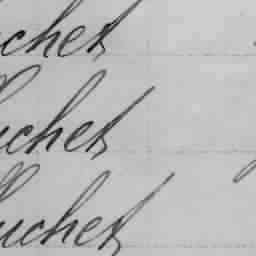 uchet
uchet
uchet